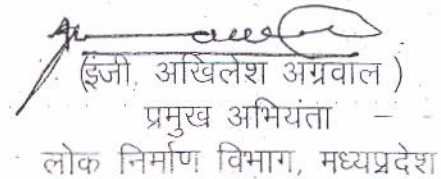 (इंजी. अखिलेश अग्रवाल )
प्रमुख अभियंता
लोक निर्माण विभाग, मध्यप्रदेश